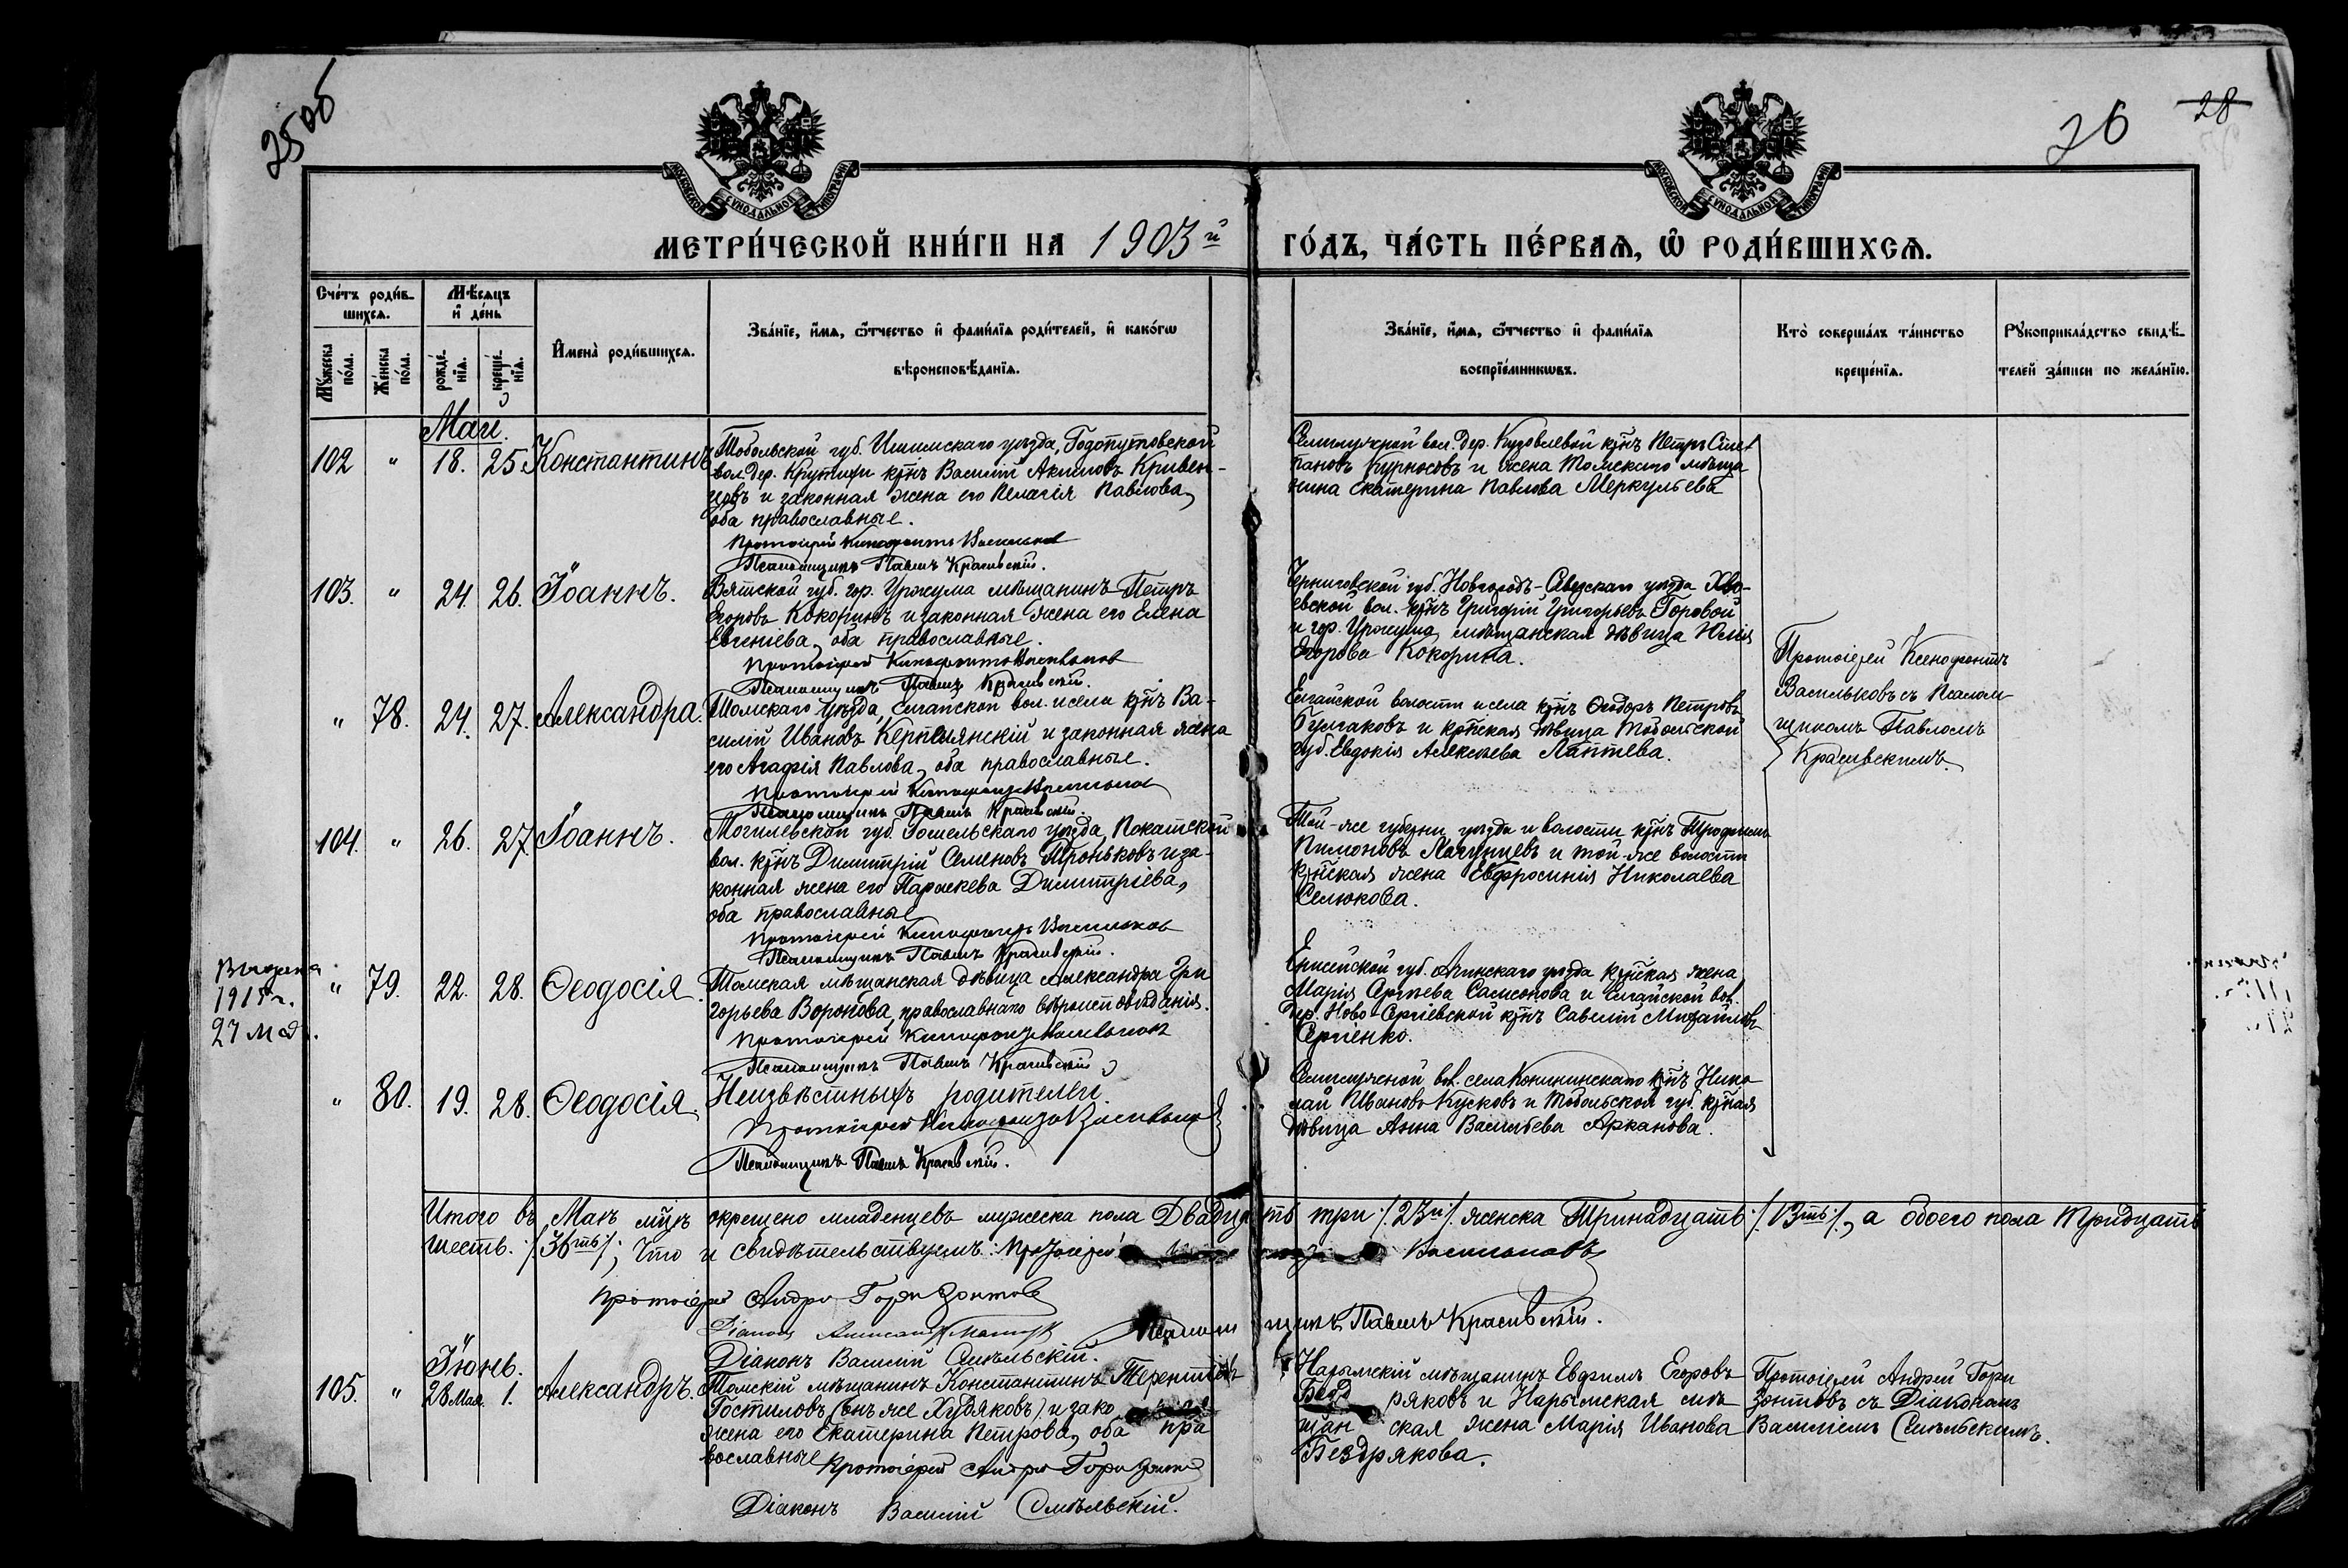 25об
26
28
МОСКОВСКОЙ СѴНОДАЛЬНОЙ ТИПОГРАФІИ
МОСКОВСКОЙ СѴНОДАЛЬНОЙ ТИПОГРАФІИ
МЕТРИ́ЧЕСКОЙ КНИ́ГИ НА 1903й ГО́ДЪ, ЧА́СТЬ ПЕ́РВАѦ, Ѡ РОДИ́ВШИХСѦ.
Сче́тъ роди́в-
шихсѧ.
Мꙋ́жеска
по́ла.
Же́нска
по́ла.
Мѣ́сѧцъ
и҆ де́нь
рожде́-
нїѧ.
креще́-
нїѧ.
И҆мена̀ роди́вшихсѧ.
Зва́нїе, и҆́мѧ, ѻ҆́тчество и҆ фами́лїѧ роди́телей, и҆ како́гѡ
вѣроисповѣ́данїѧ.
Зва́нїе, и҆́мѧ, ѻ҆́тчество и҆ фами́лїѧ
воспрїе́мникѡвъ.
Кто̀ соверша́лъ та́инство
креще́нїѧ.
Рꙋкоприкла́дство свидѣ́-
телей за́писи по жела́нїю.
Май.
102 " 18. 25. Константинъ
Тобольской губ. Ишимскаго уѣзда, Готопутовской
вол. дер. Крутихи крнъ Василій Акимовъ Кривен-
цовъ и законная жена его Пелагія Павлова,
оба православные.
Протоіерей Ксенофонтъ Васильковъ
Псаломщикъ Павелъ Красивскій.
Семилужной вол. дер. Кузовлевой крнъ Петръ Сте-
пановъ Курносовъ и жена Томскаго мѣща
нина Екатерина Павлова Меркульева
103. " 24. 26. Іоаннъ.
Вятской губ. гор. Уржума мѣщанинъ Петръ
Егоровъ Кокоринъ и законная жена его Елена
Евгеніева, оба православные.
Протоіерей Ксенофонтъ Васильковъ
Псаломщикъ Павелъ Красивскій.
Черниговской губ. Новгородъ-Сѣверскаго уѣзда Хво-
евской вол. крнъ Григорій Григорьевъ Горовой
и гор. Уржума мѣщанская дѣвица Юлія
Егорова Кокорина.
Протоіерей Ксенофонтъ
Васильковъ съ Псалом-
щикомъ Павломъ
Красивскимъ.
" 78. 24. 27. Александра.
Томскаго уѣзда, Елгайской вол. и села крнъ Ва-
силій Ивановъ Керпелянскій и законная жена
его Агафія Павлова, оба православные.
Протоіерей Ксенофонтъ Васильковъ
Псаломщикъ Павелъ Красивскій.
Елгайской волости и села крнъ Ѳеодоръ Петровъ
Булгаковъ и крнская дѣвица Тобольской
губ. Евдокія Алексѣева Лаптева.
104. " 26. 27. Іоаннъ.
Могилевской губ. Гомельскаго уѣзда, Покатской
вол. крнъ Димитрій Семеновъ Проньковъ и за-
конная жена его Параскева Димитріева,
оба православные
Протоіерей Ксенофонтъ Васильковъ
Псаломщикъ Павелъ Красивскій.
Той-же губерніи уѣзда и волости крнъ Трофимъ
Пимоновъ и той-же волости
крнская жена Евфросинія Николаева
Селюкова.
1915 г.
27 мая.
" 79. 22. 28. Ѳеодосія.
Томская мѣщанская дѣвица Александра Гри
горьева Воронова, православнаго вѣроисповѣданія.
Протоіерей Ксенофонтъ Васильковъ
Псаломщикъ Павелъ Красивскій
Енисейской губ. Ачинскаго уѣзда крнская жена
Марія Сергѣева Самсонова и Елгайской вол.
дер. Ново-Сергіевской крнъ Савелій Михайловъ
Сергіенко.
" 80. 19. 28. Ѳеодосія.
Неизвѣстныхъ родителей.
Протоіерей Ксенофонтъ Васильковъ
Псаломщикъ Павелъ Красивскій.
Семилужной вол. села Конининскаго крнъ Нико-
лай Ивановъ Кусковъ и Тобольской губ. крнская
дѣвица Анна Васильева Арканова.
Итого въ Маѣ мцѣ окрещено младенцевъ мужеска пола Двадцать три /23и/ женска Тринадцать /13ть/, а обоего пола тридцать
шесть. /36ть/, что и свидѣтельствуемъ: Протоіерей Васильковъ
Протоіерей Андрей Горизонтовъ
Діаконъ
Псаломщикъ Павелъ Красивскій.
Діаконъ Василій Смѣльскій.
Іюнь.
105. " 28 Мая. 1. Александръ.
Томскій мѣщанинъ Константинъ Терентьевъ
Гостиловъ (онъ же Худяковъ) и зако
жена его Екатерина Петрова, оба пра
вославные
Протоіерей Андрей Горизонтовъ
Діаконъ Василій Смѣльскій.
Нарымскій мѣщанинъ Евфимъ Егоровъ
Безд ряковъ и Нарымская мѣ
щан ская жена Марія Иванова
Бездрякова.
Протоіерей Андрей Гори
зонтовъ съ Діакономъ
Василіемъ Смѣльскимъ.